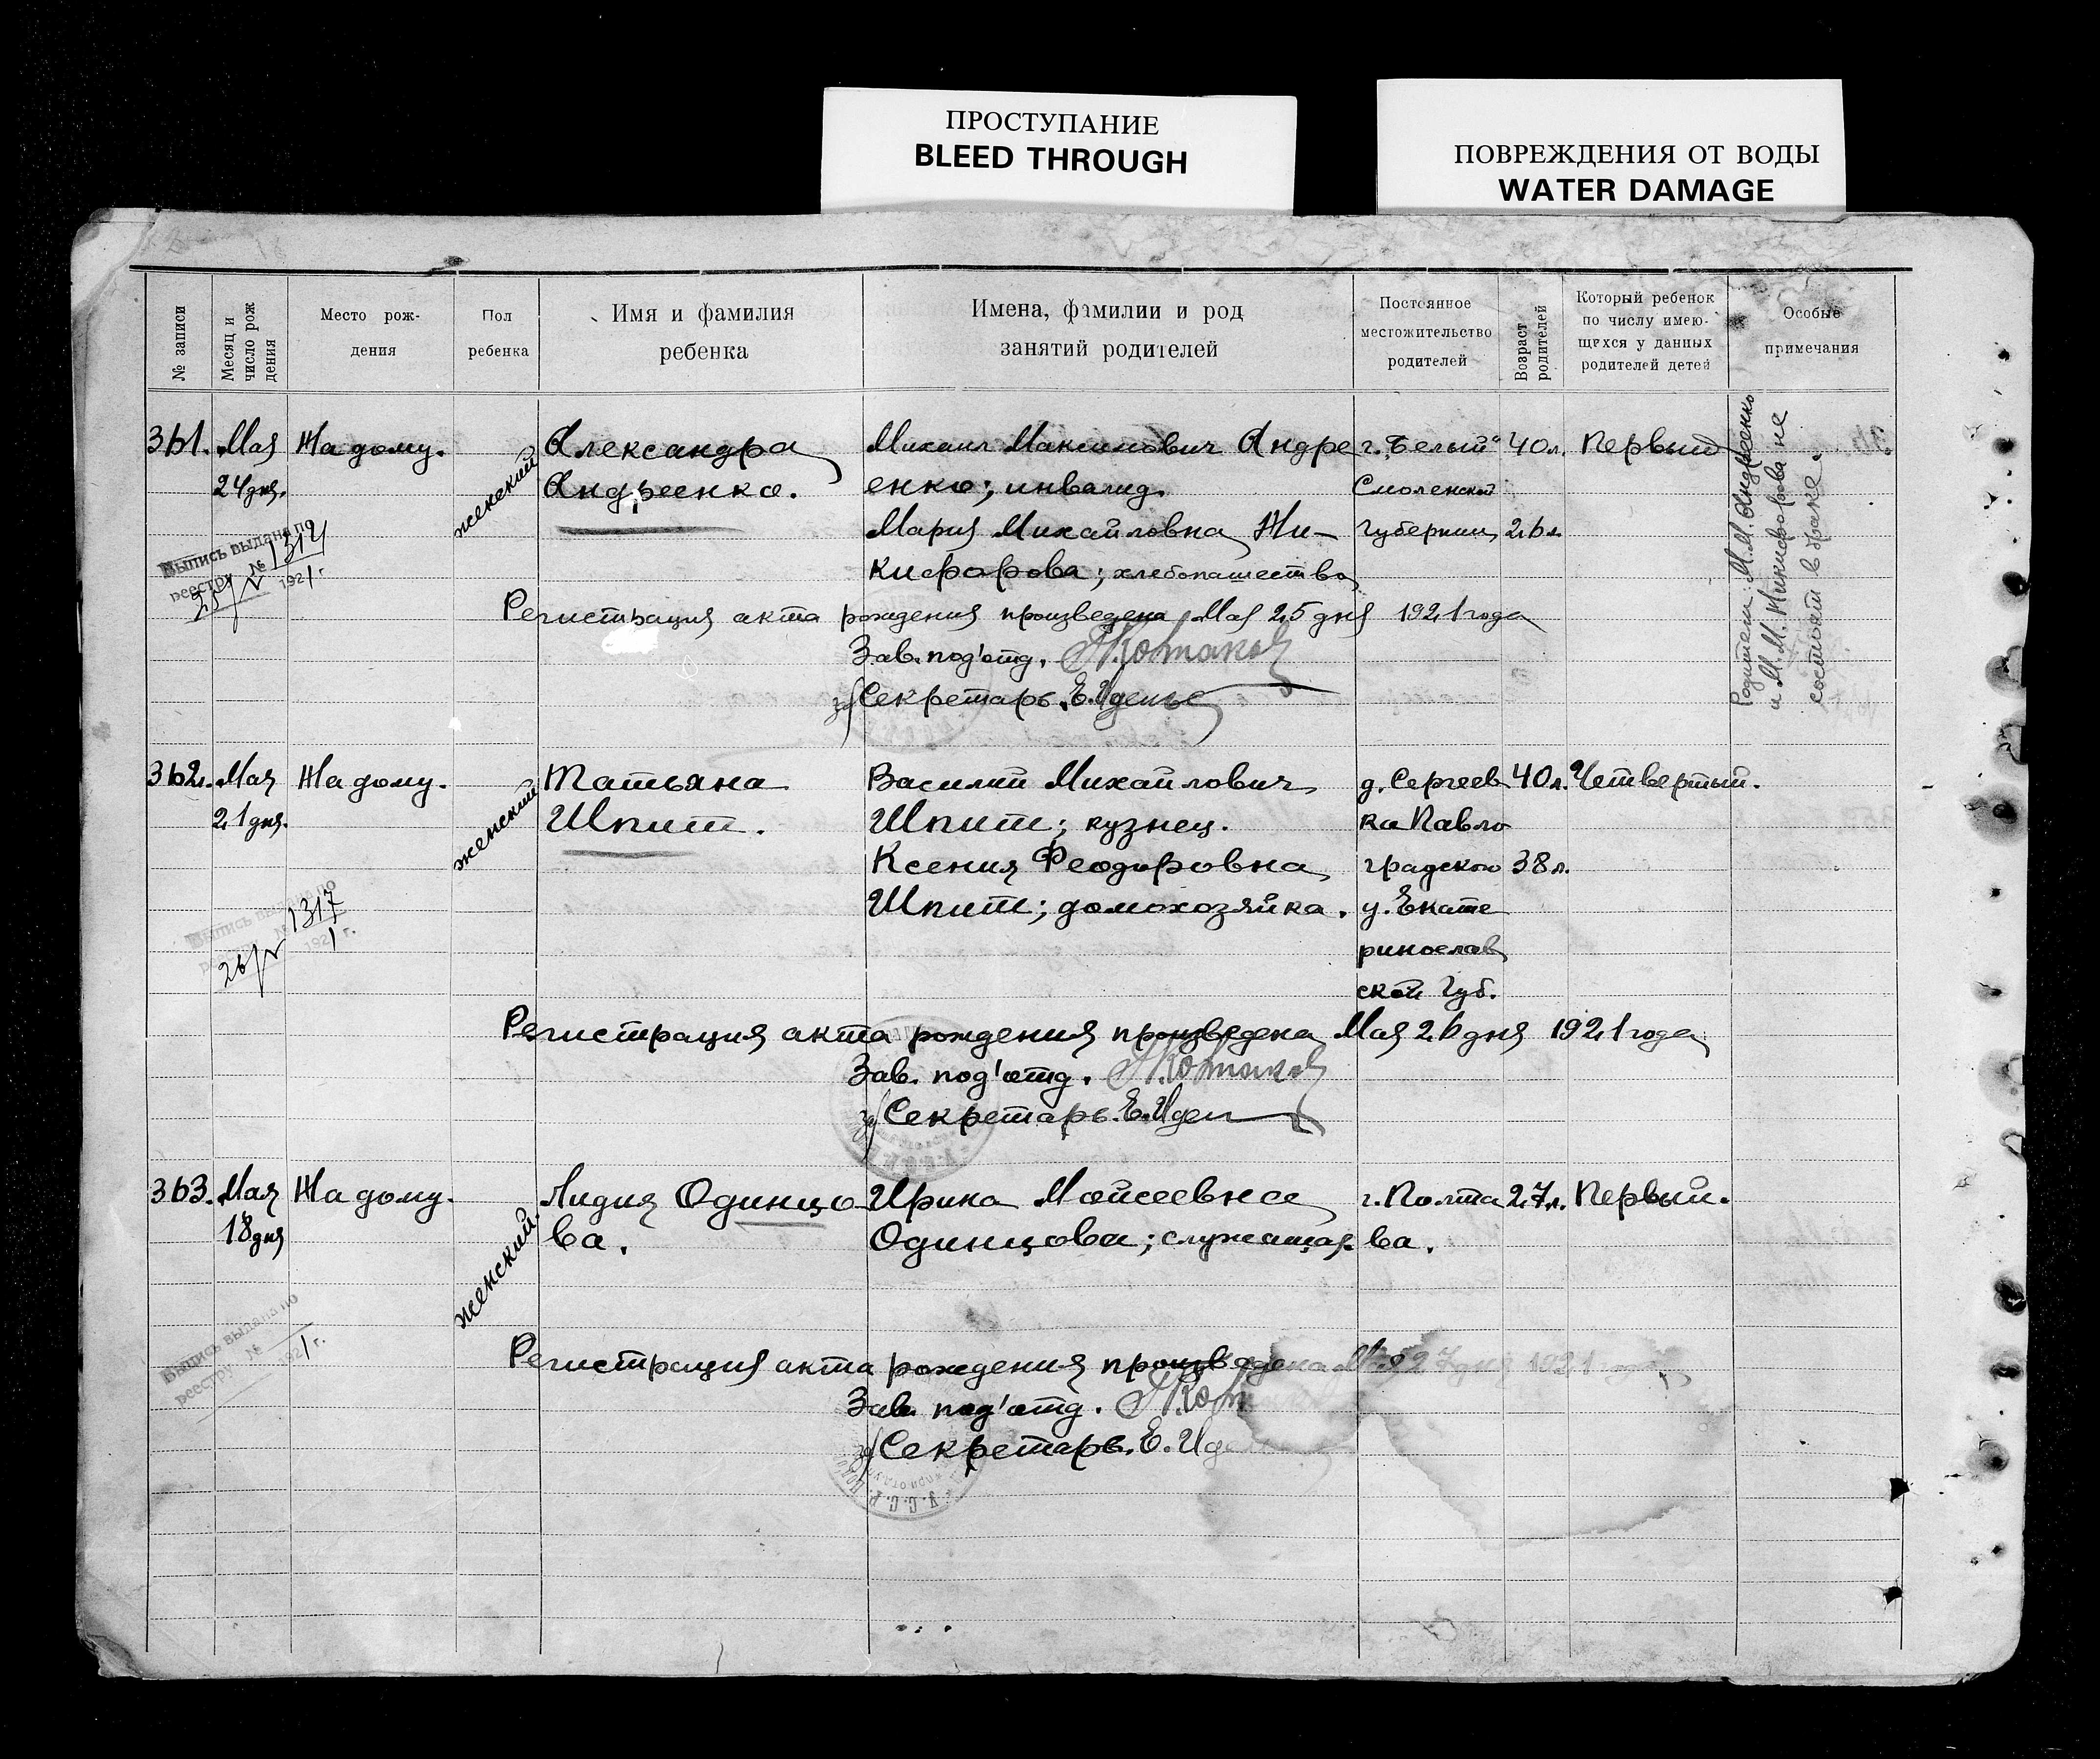 ПРОСТУПАНИЕ
BLEED THROUGH
ПОВРЕЖДЕНИЯ ОТ ВОДЫ
WATER DAMAGE
№ записи
Месяц и число рож дения
Место рож-
дения
Пол
ребенка
Имя и фамилия
ребенка
Имена, фамилии и род
занятий родителей
Постоянное
местожительство
родителей
Возраст родителей
Который ребенок
по числу имею-
щихся у данных
родителей детей
Особые
примечания
361. Мая На дому. женский Александра Михаил Максимович Андре г. „Белый“ 40 л. Первый
24 дня. Андреенко. енко; инвалид. Смоленской
Мария Михайловна Ни- Губернии 26 л.
кифорова; хлебопашество
Родители: М. М. Андреенко
и М. М. Никифорова не
состоят в браке.
Выпись выдана по
реестру № 1314
25/V 1921 г.
Регистрация акта рождения произведена Мая 25 дня 1921 года
Зав. под'отд.
Секретарь. Е.
362. Мая На дому. женский Татьяна Василий Михайлович д. Сергеев 40 л. Четвертый.
21 дня. Шпит. Шпит; кузнец. ка Павло
Ксения Феодоровна градского 38 л.
Шпит; домохозяйка. у. Екате
ринослав
ской Губ.
Выпись выдана по
№ 1317
26/V 1921 г.
Регистрация акта рождения произведена Мая 26 дня 1921 года
Зав. под'отд.
Секретарь. Е.
363. Мая На дому. женский. Лидия Одинцо Ирина Мойсеевна г. Полта 27 л. Первый.
18 дня ва. Одинцова; служащая. ва.
Выпись выдана по
реестру № 1921 г.
Регистрация акта рождения произведена Мая 27 дня 1921
Зав. под'отд.
Секретарь. Е.
У.С.С.Р.